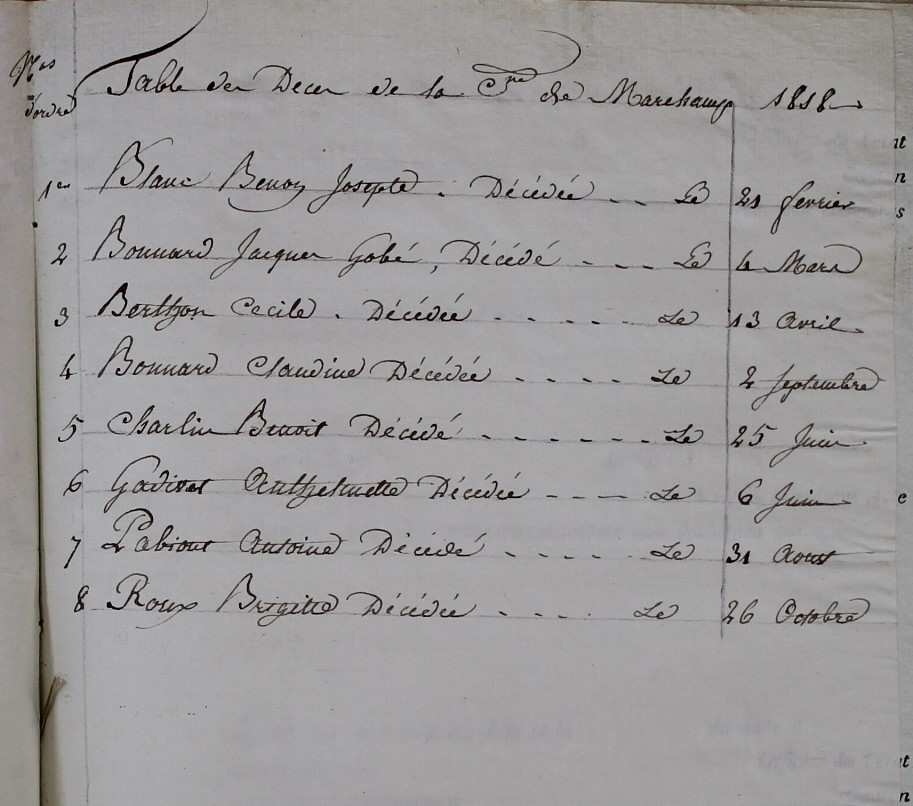 Nos
d'ordre
Table des Deces de la Cne de Marchamp 1818
1er Blanc Benoite Josepte . Décédée - - Le 21 fevrier
2 Bonnard Jacques Gobé , Décédé - - - Le 4 Mars
3 Berthon Cecile . Décédée - - - - - Le 13 Avril
4 Bonnard Claudine Décédée - - - - Le 2 Septembre
5 Charlin Benoit Décédé - - - - - - Le 25 Juin
6 Gadivet Anthelmette Décédée - - - Le 6 Juin
7 Pabiout Antoine Décédé - - - - Le 31 Aoust
8 Roux Brigitte Décédée - - - - Le 26 Octobre